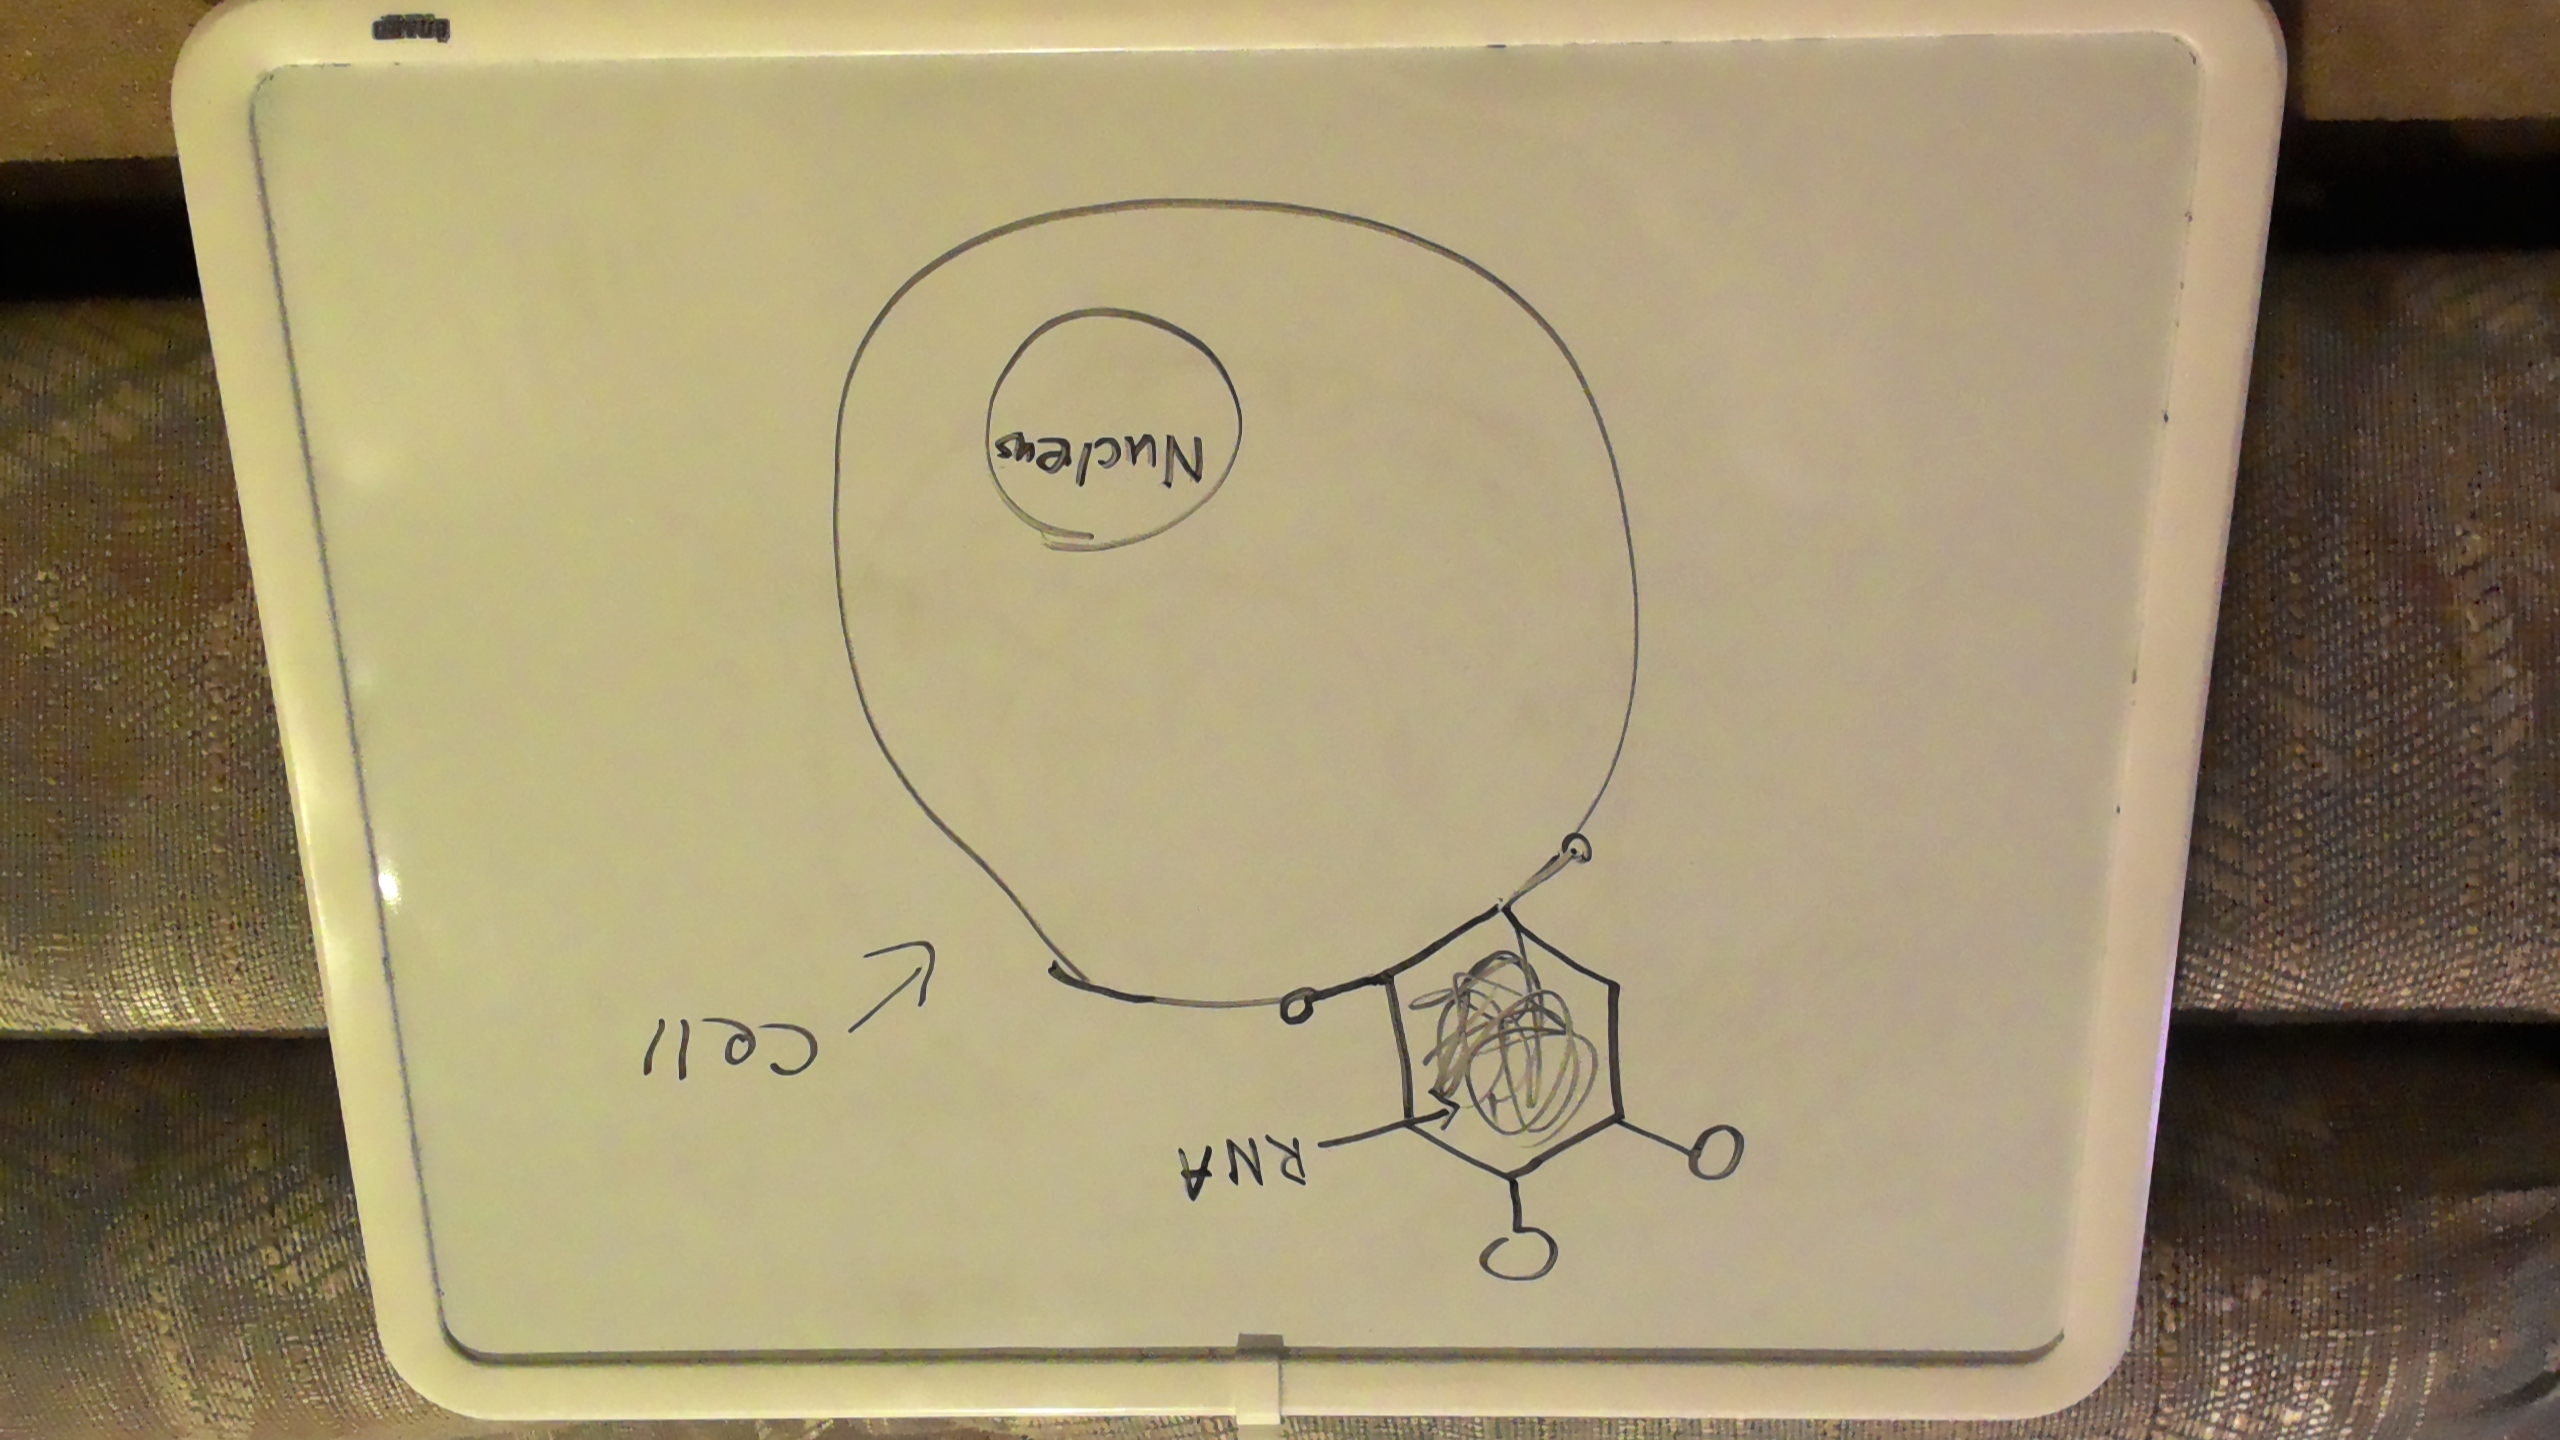 RNA
Cell
Nucleus